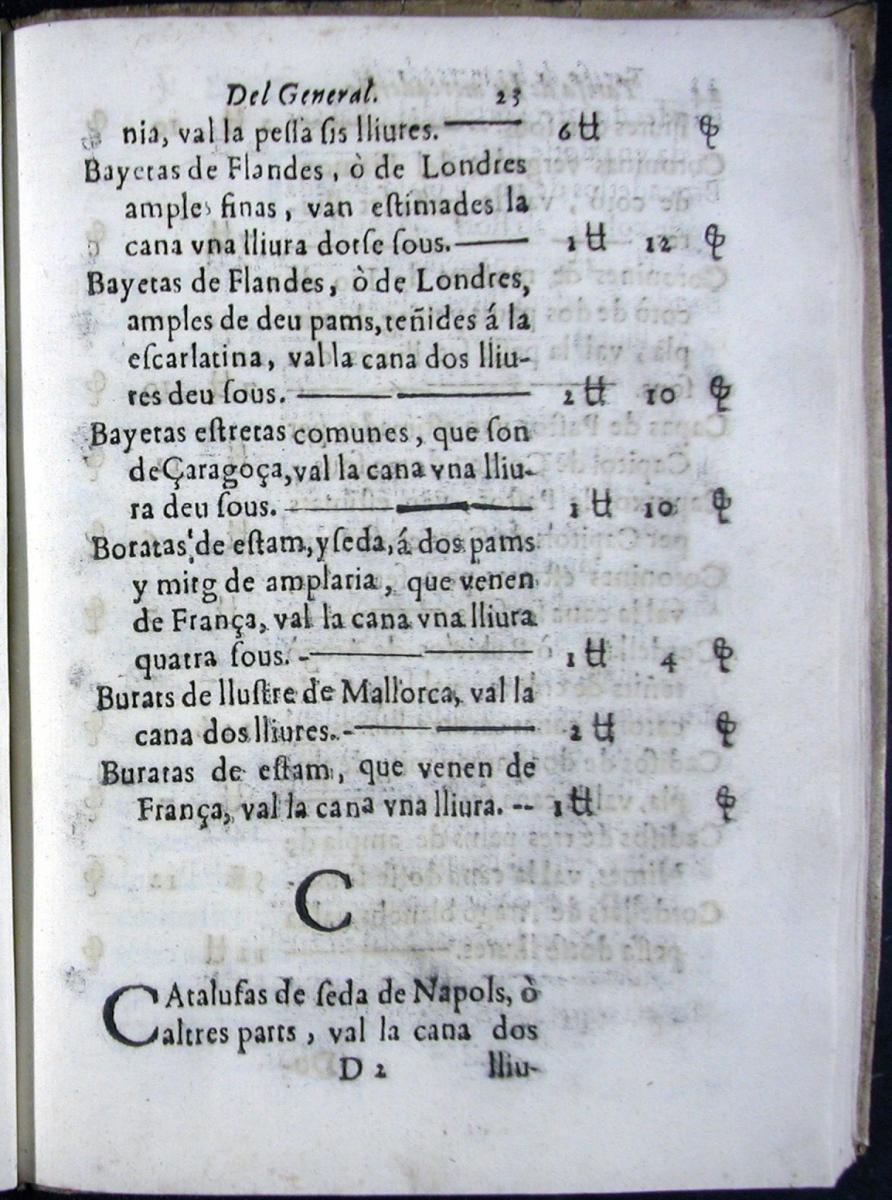 Del General. 23
nia, val la pessa sis lliures. 6 ₶ ꝭ
Bayetas de Flandes, ò de Londres
amples finas, van estimades la
cana vna lliura dotse sous. 1 ₶ 12 ꝭ
Bayetas de Flandes, ò de Londres,
amples de deu pams, teñides á la
escarlatina, val la cana dos lliu-
res deu sous. 2 ₶ 10 ꝭ
Bayetas estretas comunes, que son
de Çaragoça, val la cana vna lliu-
ra deu sous. 1 ₶ 10 ꝭ
Boratas de estam, y seda, á dos pams
y mitg de amplaria, que venen
de França, val la cana vna lliura
quatra sous. 1 ₶ 4 ꝭ
Burats de llustre de Mallorca, val la
cana dos lliures. 2 ₶ ꝭ
Buratas de estam, que venen de
França, val la cana vna lliura. -- 1 ₶ ꝭ
C
CAtalufas de seda de Napols, ò
altres parts, val la cana dos
D 2 lliu-